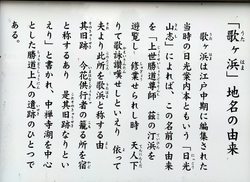 「歌ヶ浜」地名の由来
うたがはま
歌ヶ浜は江戸中期に編集された
当時の日光案内本ともいう「日光
山志」によれば、この名前の由来
を「上世勝道導師　茲の汀浜を
遊覧し　修業せられし時　天人下
りて歌詠讃嘆せしといえり　依って
夫より此所を歌浜と称する由
其旧跡　今花供行者の籠の所を宿
と称するあり　是其旧跡なりとい
えり」と書かれ、中禅寺湖を中心
とした勝道上人の遺跡のひとつで
ある。